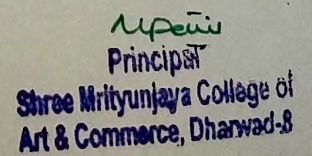 Principal
Shree Mrityunjaya College of
Art & Commerce, Dharwad-8